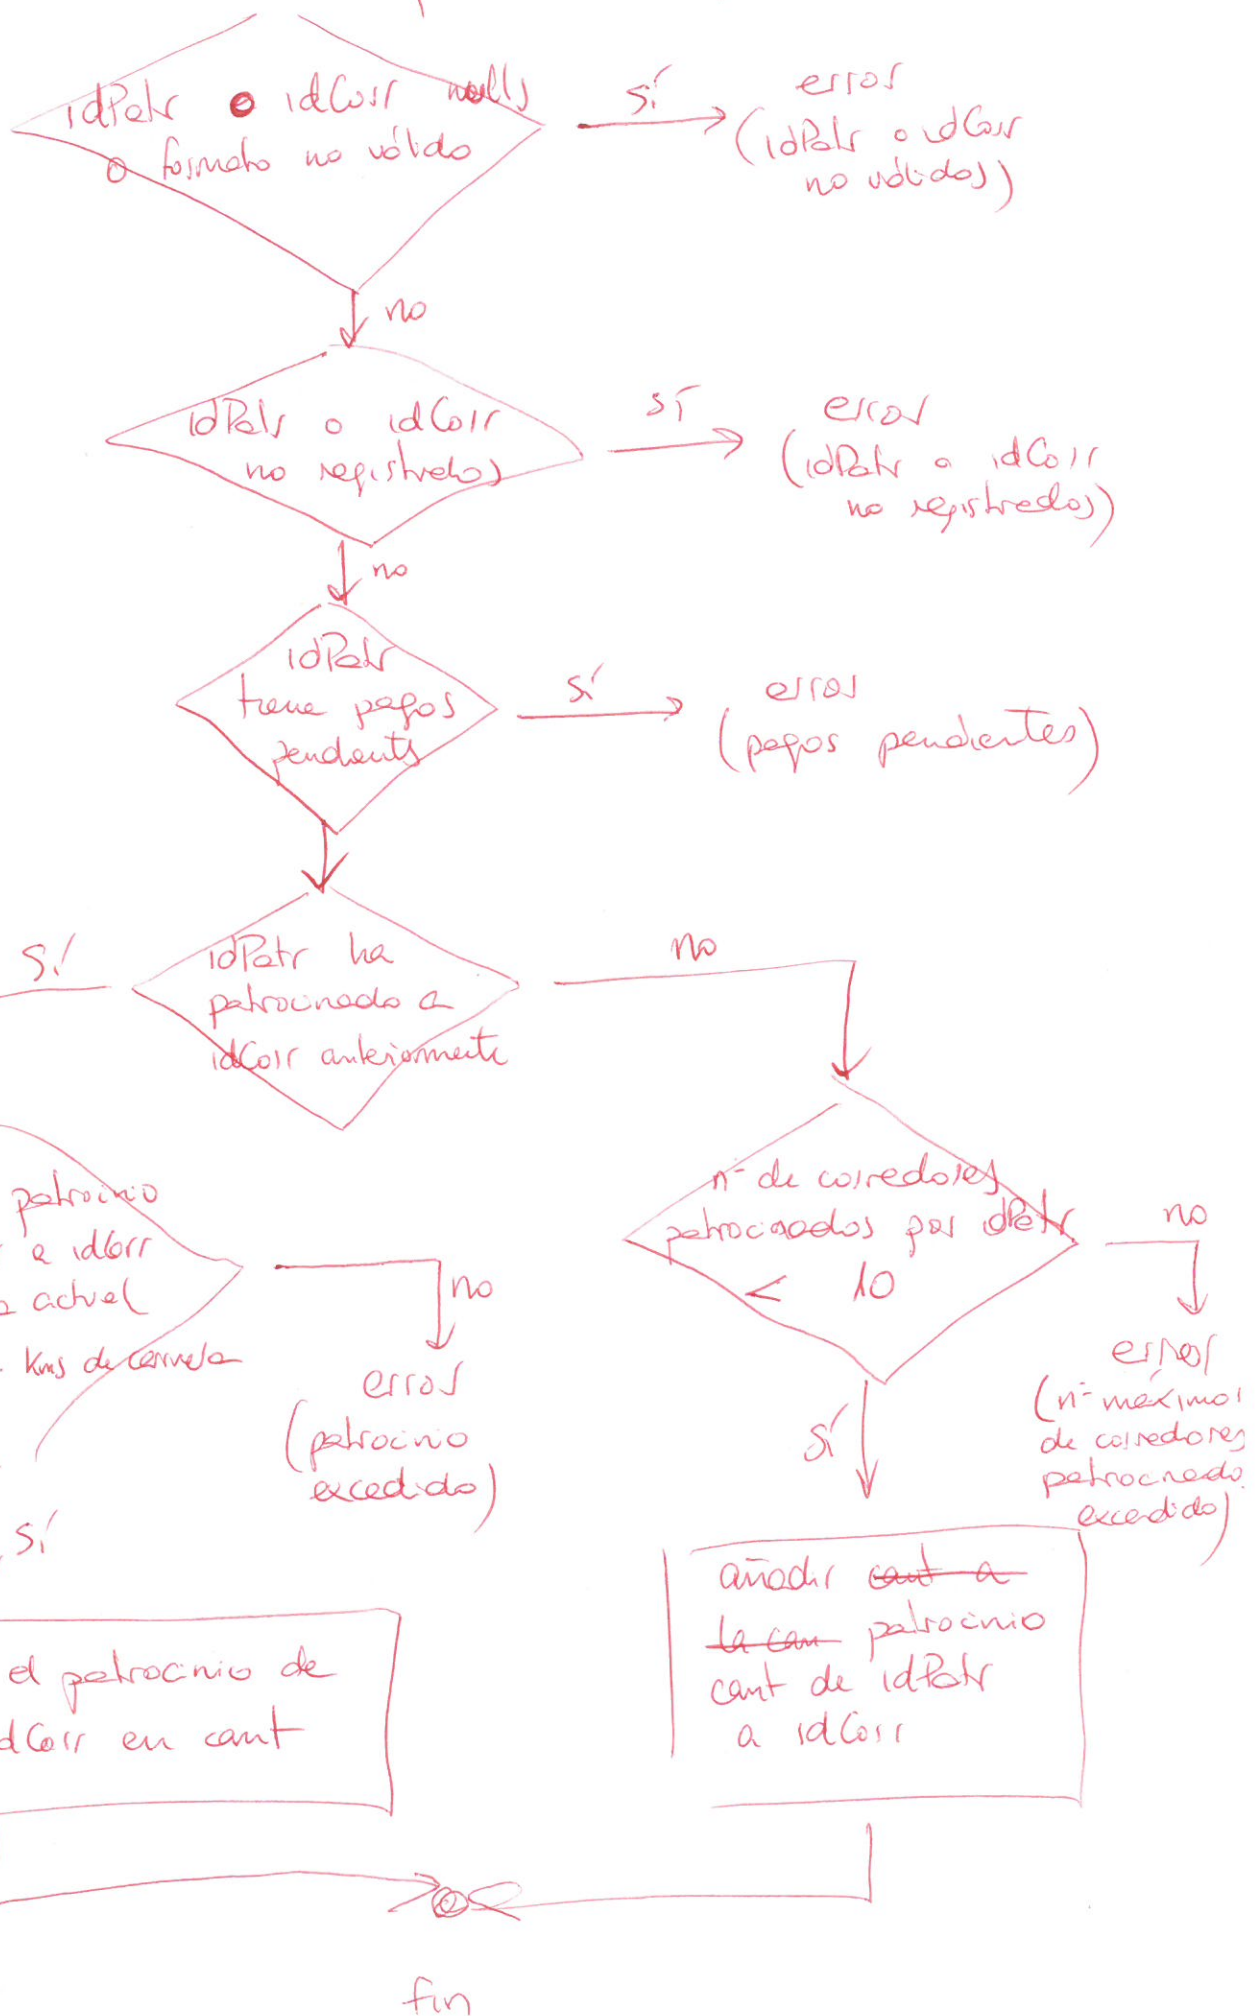 idPatr o idCorr nulls
o formato no válido
sí
error
(idPatr o idCorr
no válidos)
no
idPatr o idCorr
no registrados
sí
error
(idPatr o idCorr
no registrados)
no
idPatr
tiene pagos
pendients
sí
error
(pagos pendientes)
sí
idPatr ha
patrocinado a
idCorr anteriormente
no
patrocinio
a idCorr
actual
Kms de carrera
no
error
(patrocinio
excedido)
nº de corredores
patrocinados por idPatr
< 10
no
error
(nº máximo
de corredores
patrocinado
excedido)
sí
sí
el patrocinio de
dCorr en cant
añadir cant a
la can patrocinio
cant de idPatr
a idCorr
fin